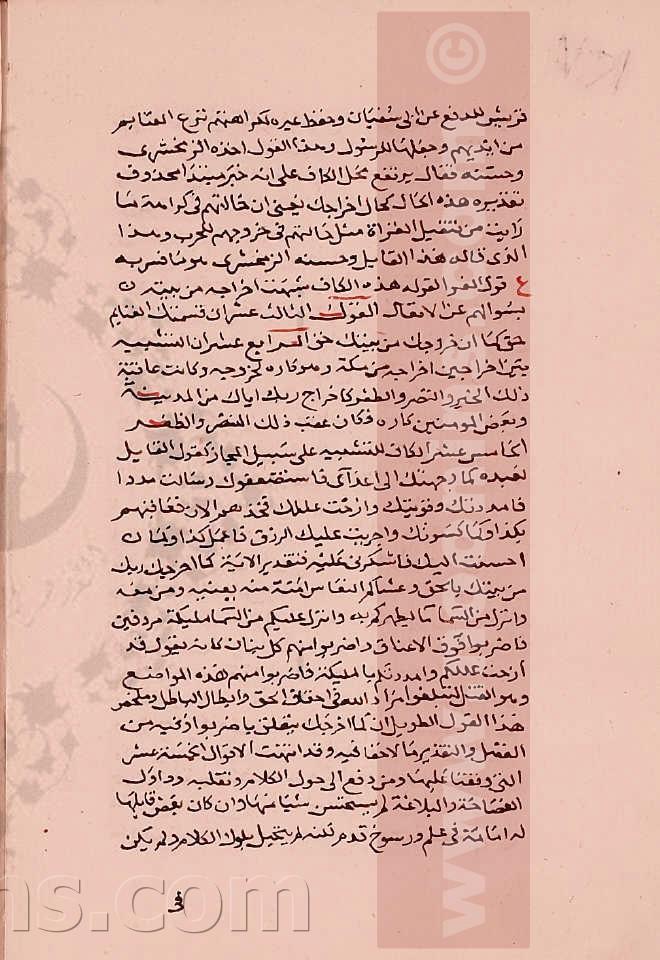 قريش للدفع عن ابى سفيان وحفظ عيره لكراهتهم نزع الغنايم
من ايديهم وجعلها للرسول وهذا القول اخذه الزمخشرى
وحسنه فقال يرتفع محل الكاف على انه خبر مبتدا محذوف
تقديره هذه الحال كحال اخراجك يعنى ان حالتهم فى كراهة ما
رايت من تنفيل الغزاة مثل حالتهم فى خروجهم للحرب وهذا
الذى قاله هذا القايل وحسنه الزمخشرى هو ما فسر به
ع قول الفرا لقوله هذه الكاف شبهت اخراجه من بيته
بسوالهم عن الانفال القول الثالث عشر ان قسمتك الغنايم
حق كما ان خروجك من بيتك حق الرابع عشر ان التشبيه
بين اخراجين اخراجه من مكة وهو كاره لخروجه وكانت عاقبة
ذلك الخير والنصر والظفر كاخراج ربك اياك من المدينة
وبعض المومنين كاره فكان عقب ذلك النصر والظفر
الخامس عشر الكاف للتشبيه على سبيل المجاز كقول القايل
لعبده كما وجهتك الى اعداى فاستضعفوك وسالت مددا
فامددتك وقويتك وازحت عللك فخذهم الان فعاقبهم
بكذا وكما كسوتك واجريت عليك الرزق فاعمل كذا وكما
احسنت اليك فاشكرنى عليه فتقدير الاية كما اخرجك ربك
من بيتك بالحق وغشاكم النعاس امنة منه يعنى به ومن معه
وانزل من السما ما ليطهركم به وانزل عليكم من السما مليكة مردفين
فاضربوا فوق الاعناق واضربوا منهم كل بنان كانه يقول قد
ازحت عللكم وامددتكم بالمليكة فاضربوا منهم هذه المواضع
وهو القتل لتبلغوا مراد الله فى احقاق الحق وابطال الباطل وملخص
هذا القول الطويل ان كما اخرجك يتعلق باضربوا وفيه من
الفصل والتقدير ما لا خفا فيه وقد انتهت الاقوال الخمسة عشر
التى وقفنا عليها ومن دفع الى حول الكلام وتقلبه وزاول
الفصاحة والبلاغة لم يستحسن شيا منها وان كان بعض قايلها
له امامة فى علم ورسوخ قدم لكنه لم يتخيل بلوك الكلام ولم يكن